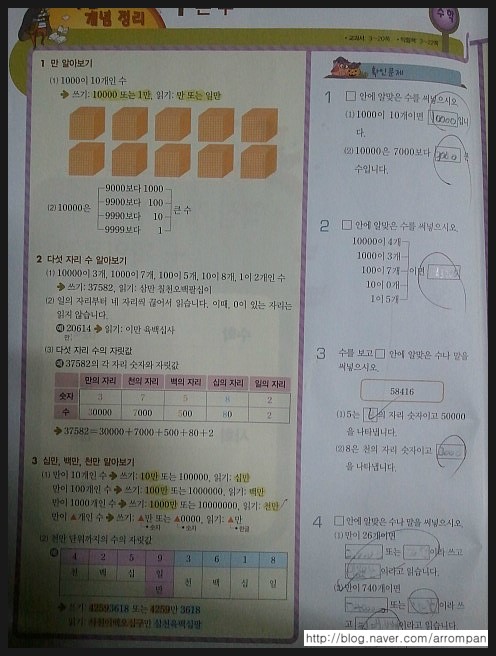 개념 정리
수학
• 교과서 3~20쪽 • 익힘책 3~12쪽
1 만 알아보기
(1) 1000이 10개인 수
➔ 쓰기: 10000 또는 1만, 읽기: 만 또는 일만
(2) 10000은
9000보다 1000
9900보다 100
9990보다 10
9999보다 1
큰 수
2 다섯 자리 수 알아보기
(1) 10000이 3개, 1000이 7개, 100이 5개, 10이 8개, 1이 2개인 수
➔ 쓰기: 37582, 읽기: 삼만 칠천오백팔십이
(2) 일의 자리부터 네 자리씩 끊어서 읽습니다. 이때, 0이 있는 자리는
읽지 않습니다.
예 20614 ➔ 읽기: 이만 육백십사
만
(3) 다섯 자리 수의 자릿값
예 37582의 각 자리 숫자와 자릿값
만의 자리 천의 자리 백의 자리 십의 자리 일의 자리
숫자 3 7 5 8 2
수 30000 7000 500 80 2
➔ 37582=30000+7000+500+80+2
3 십만, 백만, 천만 알아보기
(1) 만이 10개인 수 ➔ 쓰기: 10만 또는 100000, 읽기: 십만
만이 100개인 수 ➔ 쓰기: 100만 또는 1000000, 읽기: 백만
만이 1000개인 수 ➔ 쓰기: 1000만 또는 10000000, 읽기: 천만
만이 ▲개인 수 ➔ 쓰기: ▲만 또는 ▲0000, 읽기: ▲만
숫자 숫자 한글
(2) 천만 단위까지의 수의 자릿값
예 4 2 5 9 3 6 1 8
천 백 십 일 천 백 십 일
만
➔ 쓰기 42593618 또는 4259만 3618
읽기 사천이백오십구만 삼천육백십팔
확인문제
1 □ 안에 알맞은 수를 써넣으시오.
(1) 1000이 10개이면 10000입니
다.
(2) 10000은 7000보다 큰
수입니다.
2 □ 안에 알맞은 수를 써넣으시오.
10000이 4개
1000이 3개
100이 7개 이면
10이 0개
1이 5개
3 수를 보고 □ 안에 알맞은 수나 말을
써넣으시오.
58416
(1) 5는 의 자리 숫자이고 50000
을 나타냅니다.
(2) 8은 천의 자리 숫자이고
을 나타냅니다.
4 □ 안에 알맞은 수나 말을 써넣으시오.
(1) 만이 26개이면
또는 이라 쓰고
이라고 읽습니다.
(2) 만이 740개이면
또는 이라 쓰
고 이라고 읽습니다.
http://blog.naver.com/arrompan